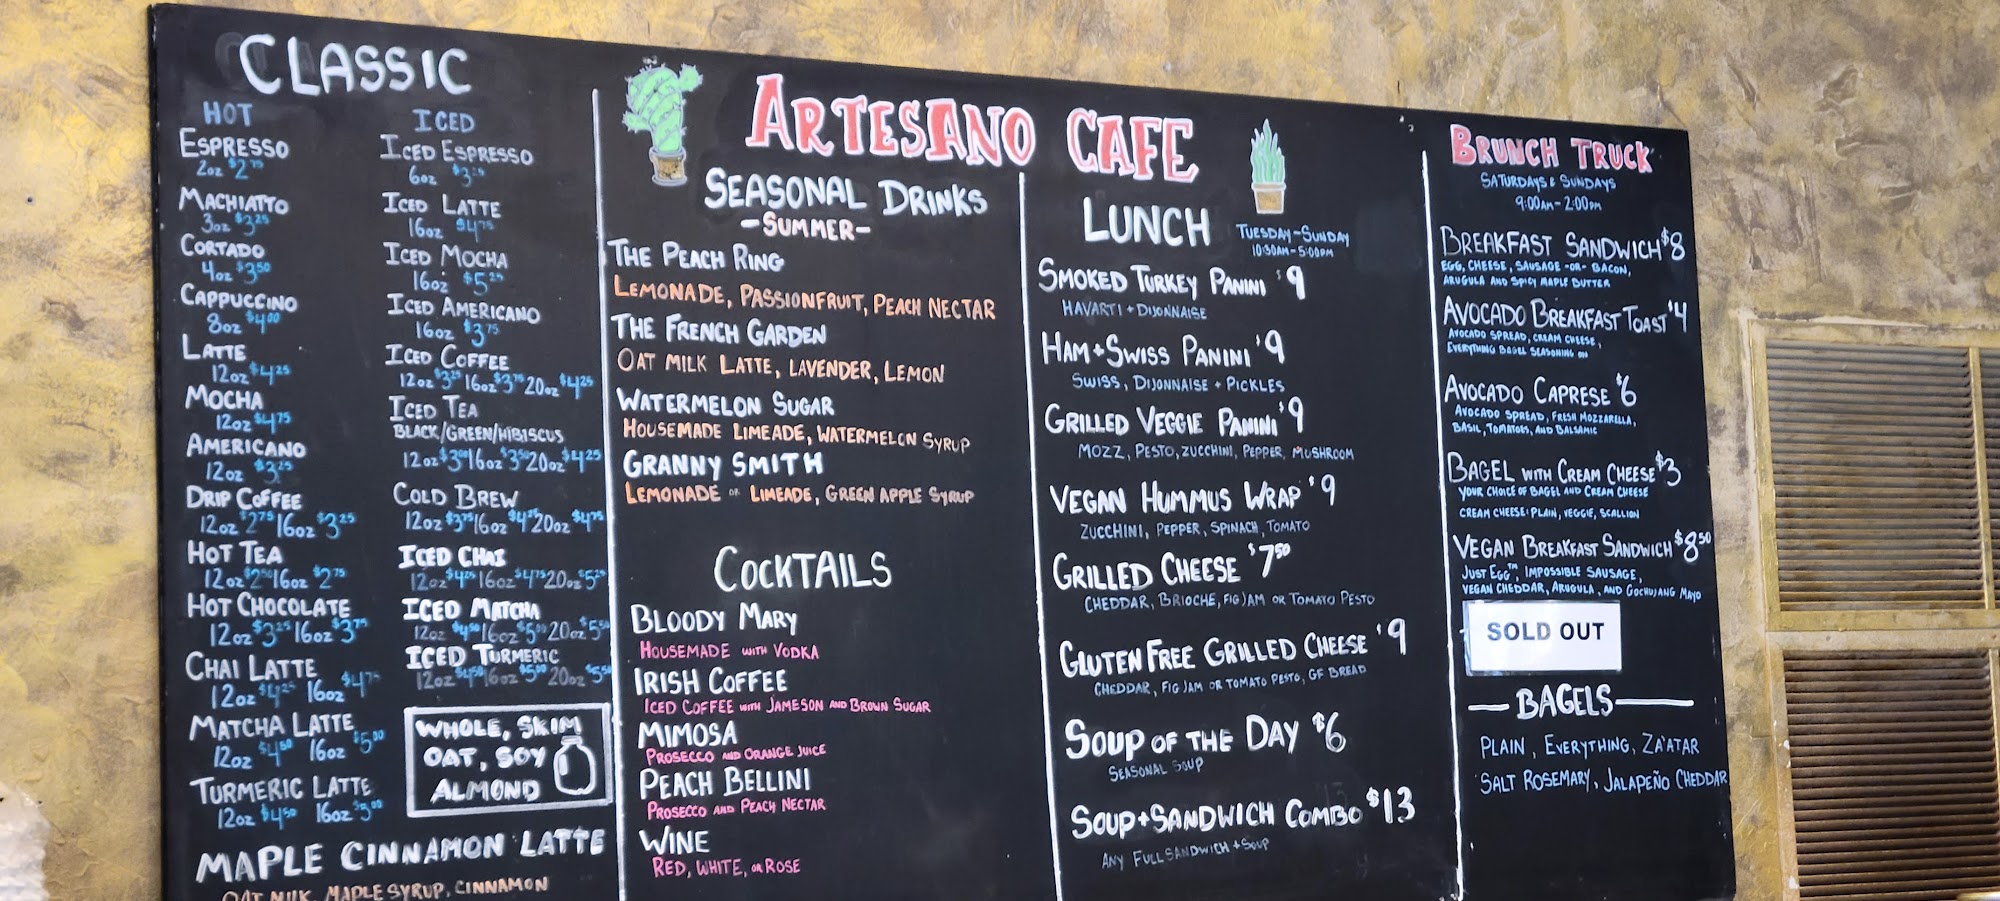 CLASSIC
HOT
ESPRESSO
2oz $2.75
MACHIATTO
3oz $3.25
CORTADO
4oz $3.50
CAPPUCCINO
8oz $4.00
LATTE
12oz $4.25
MOCHA
12oz $4.75
AMERICANO
12oz $3.25
DRIP COFFEE
12oz $2.75 16oz $3.25
HOT TEA
12oz $2.50 16oz $2.75
HOT CHOCOLATE
12oz $3.25 16oz $3.75
CHAI LATTE
12oz $4.25 16oz $4.75
MATCHA LATTE
12oz $4.50 16oz $5.00
TURMERIC LATTE
12oz $4.50 16oz $5.00
MAPLE CINNAMON LATTE
OAT MILK, MAPLE SYRUP, CINNAMON
ICED
ICED ESPRESSO
6oz $3.25
ICED LATTE
16oz $4.75
ICED MOCHA
16oz $5.25
ICED AMERICANO
16oz $3.75
ICED COFFEE
12oz $3.25 16oz $3.75 20oz $4.25
ICED TEA
BLACK/GREEN/HIBISCUS
12oz $3.00 16oz $3.50 20oz $4.25
COLD BREW
12oz $3.75 16oz $4.25 20oz $4.75
ICED CHAI
12oz $4.25 16oz $4.75 20oz $5.25
ICED MATCHA
12oz $4.50 16oz $5.00 20oz $5.50
ICED TURMERIC
12oz $4.50 16oz $5.00 20oz $5.50
WHOLE, SKIM
OAT, SOY
ALMOND
ARTESANO CAFE
SEASONAL DRINKS
-SUMMER-
THE PEACH RING
LEMONADE, PASSIONFRUIT, PEACH NECTAR
THE FRENCH GARDEN
OAT MILK LATTE, LAVENDER, LEMON
WATERMELON SUGAR
HOUSEMADE LIMEADE, WATERMELON SYRUP
GRANNY SMITH
LEMONADE OR LIMEADE, GREEN APPLE SYRUP
COCKTAILS
BLOODY MARY
HOUSEMADE WITH VODKA
IRISH COFFEE
ICED COFFEE WITH JAMESON AND BROWN SUGAR
MIMOSA
PROSECCO AND ORANGE JUICE
PEACH BELLINI
PROSECCO AND PEACH NECTAR
WINE
RED, WHITE, OR ROSE
LUNCH
TUESDAY-SUNDAY
10:30AM-5:00PM
SMOKED TURKEY PANINI $9
HAVARTI + DIJONNAISE
HAM+SWISS PANINI $9
SWISS, DIJONNAISE + PICKLES
GRILLED VEGGIE PANINI $9
MOZZ, PESTO, ZUCCHINI, PEPPER, MUSHROOM
VEGAN HUMMUS WRAP $9
ZUCCHINI, PEPPER, SPINACH, TOMATO
GRILLED CHEESE $7.50
CHEDDAR, BRIOCHE, FIG JAM OR TOMATO PESTO
GLUTEN FREE GRILLED CHEESE $9
CHEDDAR, FIG JAM OR TOMATO PESTO, GF BREAD
SOUP OF THE DAY $6
SEASONAL SOUP
SOUP+SANDWICH COMBO $13
ANY FULL SANDWICH + SOUP
BRUNCH TRUCK
SATURDAYS & SUNDAYS
9:00AM-2:00PM
BREAKFAST SANDWICH $8
EGG, CHEESE, SAUSAGE -OR- BACON,
ARUGULA AND SPICY MAPLE BUTTER
AVOCADO BREAKFAST TOAST $4
AVOCADO SPREAD, CREAM CHEESE,
EVERYTHING BAGEL SEASONING
AVOCADO CAPRESE $6
AVOCADO SPREAD, FRESH MOZZARELLA,
BASIL, TOMATOES, AND BALSAMIC
BAGEL WITH CREAM CHEESE $3
YOUR CHOICE OF BAGEL AND CREAM CHEESE
CREAM CHEESE: PLAIN, VEGGIE, SCALLION
VEGAN BREAKFAST SANDWICH $8.50
JUST EGG™, IMPOSSIBLE SAUSAGE,
VEGAN CHEDDAR, ARUGULA, AND GOCHUJANG MAYO
SOLD OUT
BAGELS
PLAIN, EVERYTHING, ZA'ATAR
SALT ROSEMARY, JALAPEÑO CHEDDAR